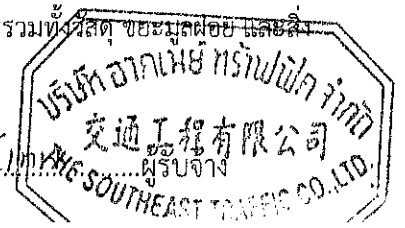 รวมทั้งวัสดุ ขยะมูลฝอย และสิ่ง
บริษัท อาคเนย์ ทร๊าฟฟิค จำกัด
交通工程有限公司
ผู้รับจ้าง
THE SOUTHEAST TRAFFIC CO.,LTD.